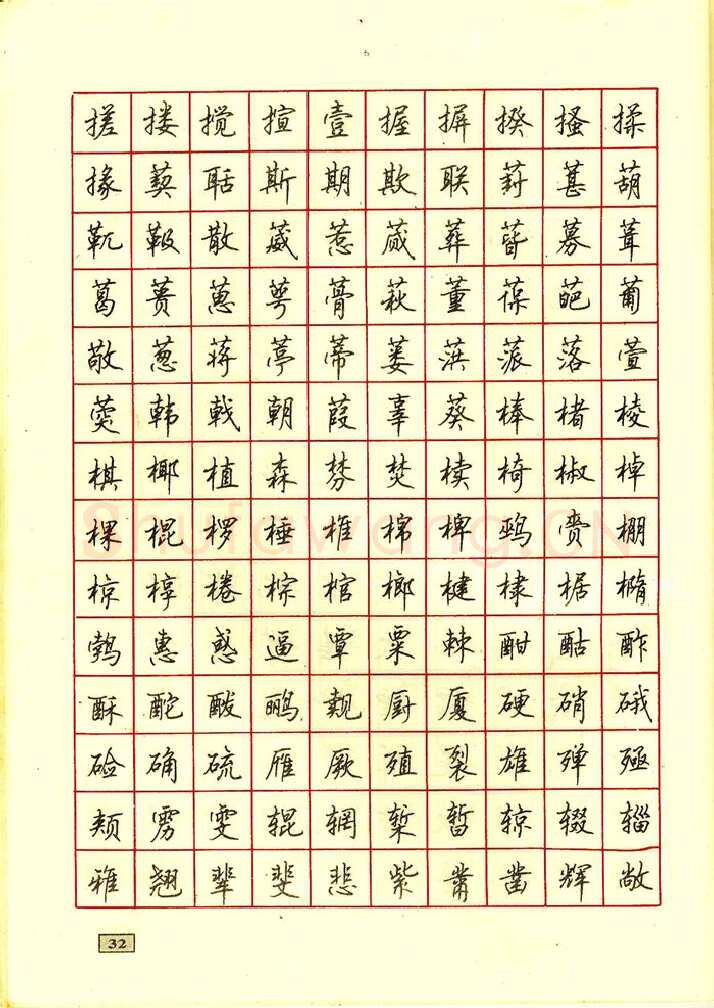 搓搂搅揎壹握摒揆搔揉
掾葜聒斯期欺联葑葚葫
靰靸散葳惹蒇葬蒈募葺
葛蒉葸萼蓇萩董葆葩葡
敬葱蒋葶蒂蒌葓蒎落萱
葖韩戟朝葭辜葵棒楮棱
棋椰植森棼焚椟椅椒棹
棵棍椤棰椎棉椑鹀赍棚
椋椁棬棕棺榔楗棣椐椭
鹁惠惑逼覃粟棘酣酤酢
酥酡酦鹂觌厨厦硬硝硪
硷确硫雁厥殖裂雄殚殛
颊雳雯辊辋椠暂辌辍辎
雅翘辈斐悲紫黹凿辉敞
32
Shufawang.CN